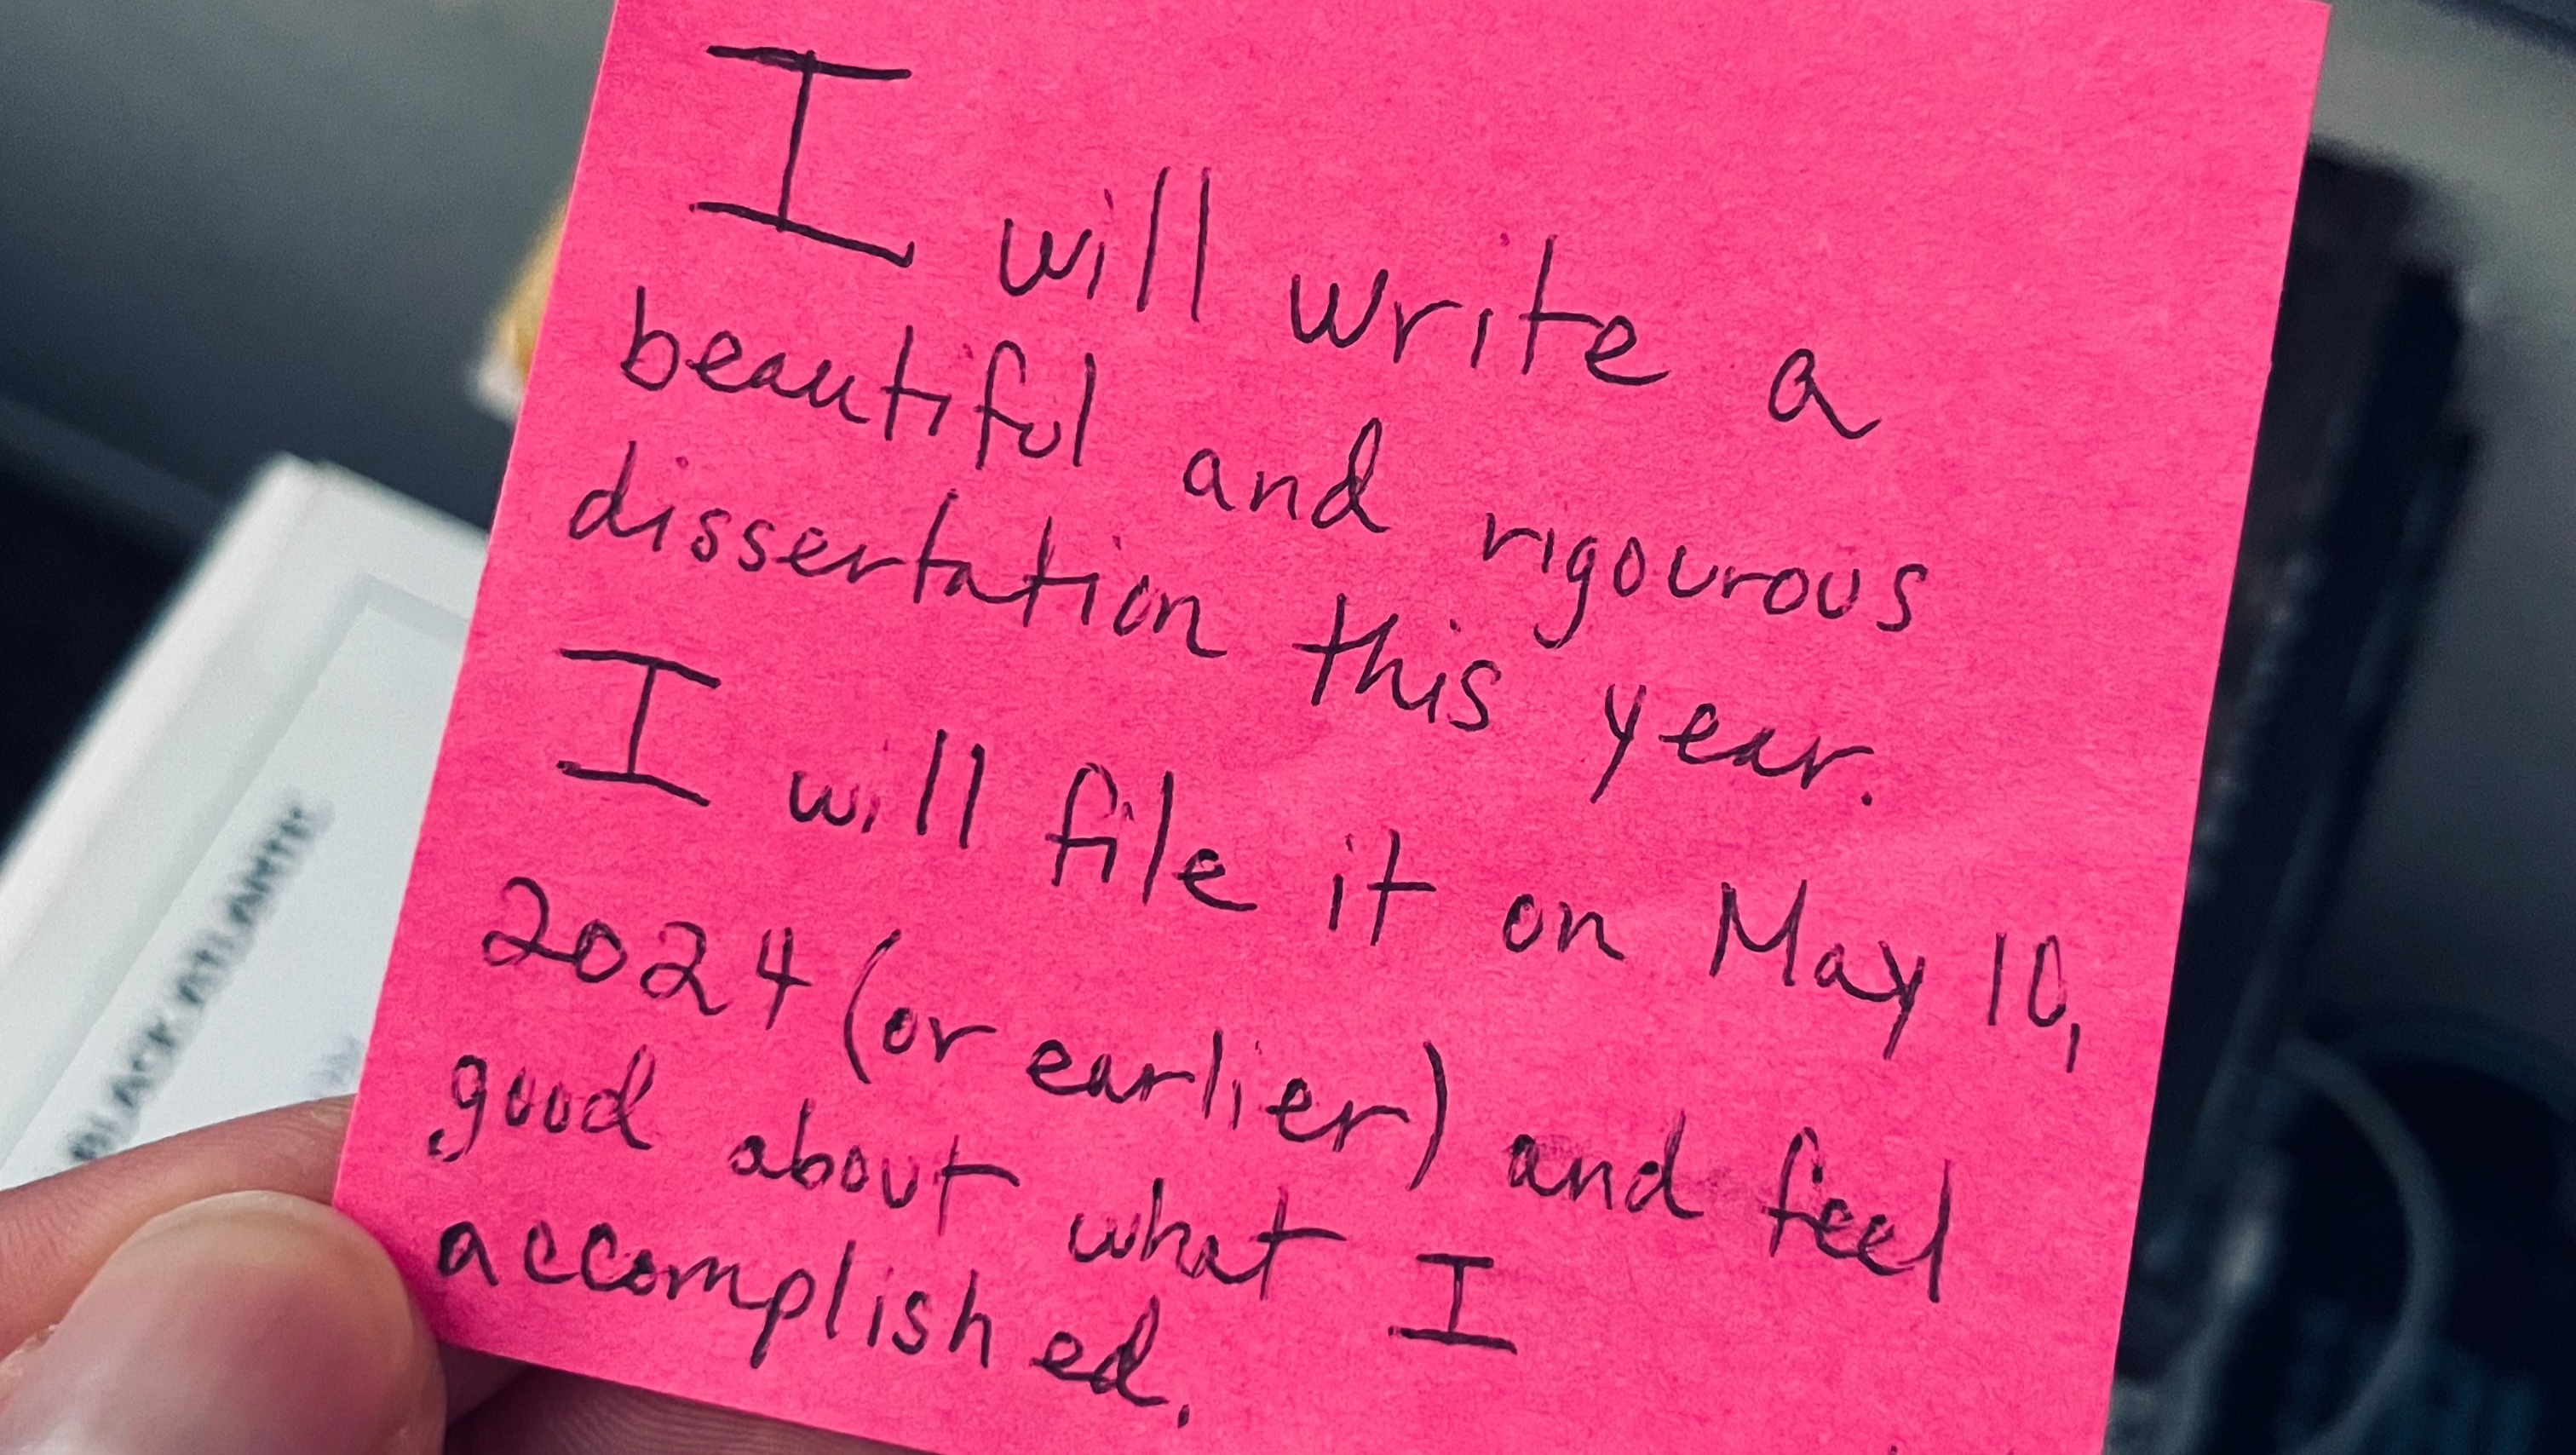 I will write a
beautiful and rigourous
dissertation this year.
I will file it on May 10,
2024 (or earlier) and feel
good about what I
accomplished.
BLACK ATLANTIC